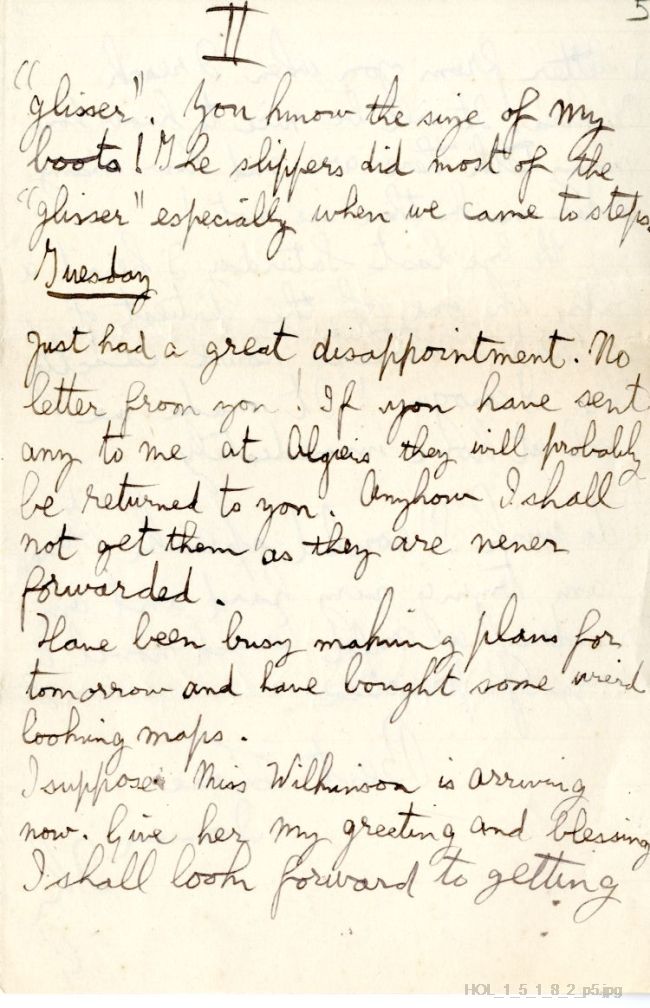 5
II
"glisser". You know the size of my
boots! The slippers did most of the
"glisser" especially when we came to steps.
Tuesday
Just had a great disappointment. No
letter from you! If you have sent
any to me at Algiers they will probably
be returned to you. Anyhow I shall
not get them as they are never
forwarded.
Have been busy making plans for
tomorrow and have bought some weird
looking maps.
I suppose Miss Wilkinson is arriving
now. Give her my greeting and blessing
I shall look forward to getting
HOL_1_5_1_8_2_p5.jpg